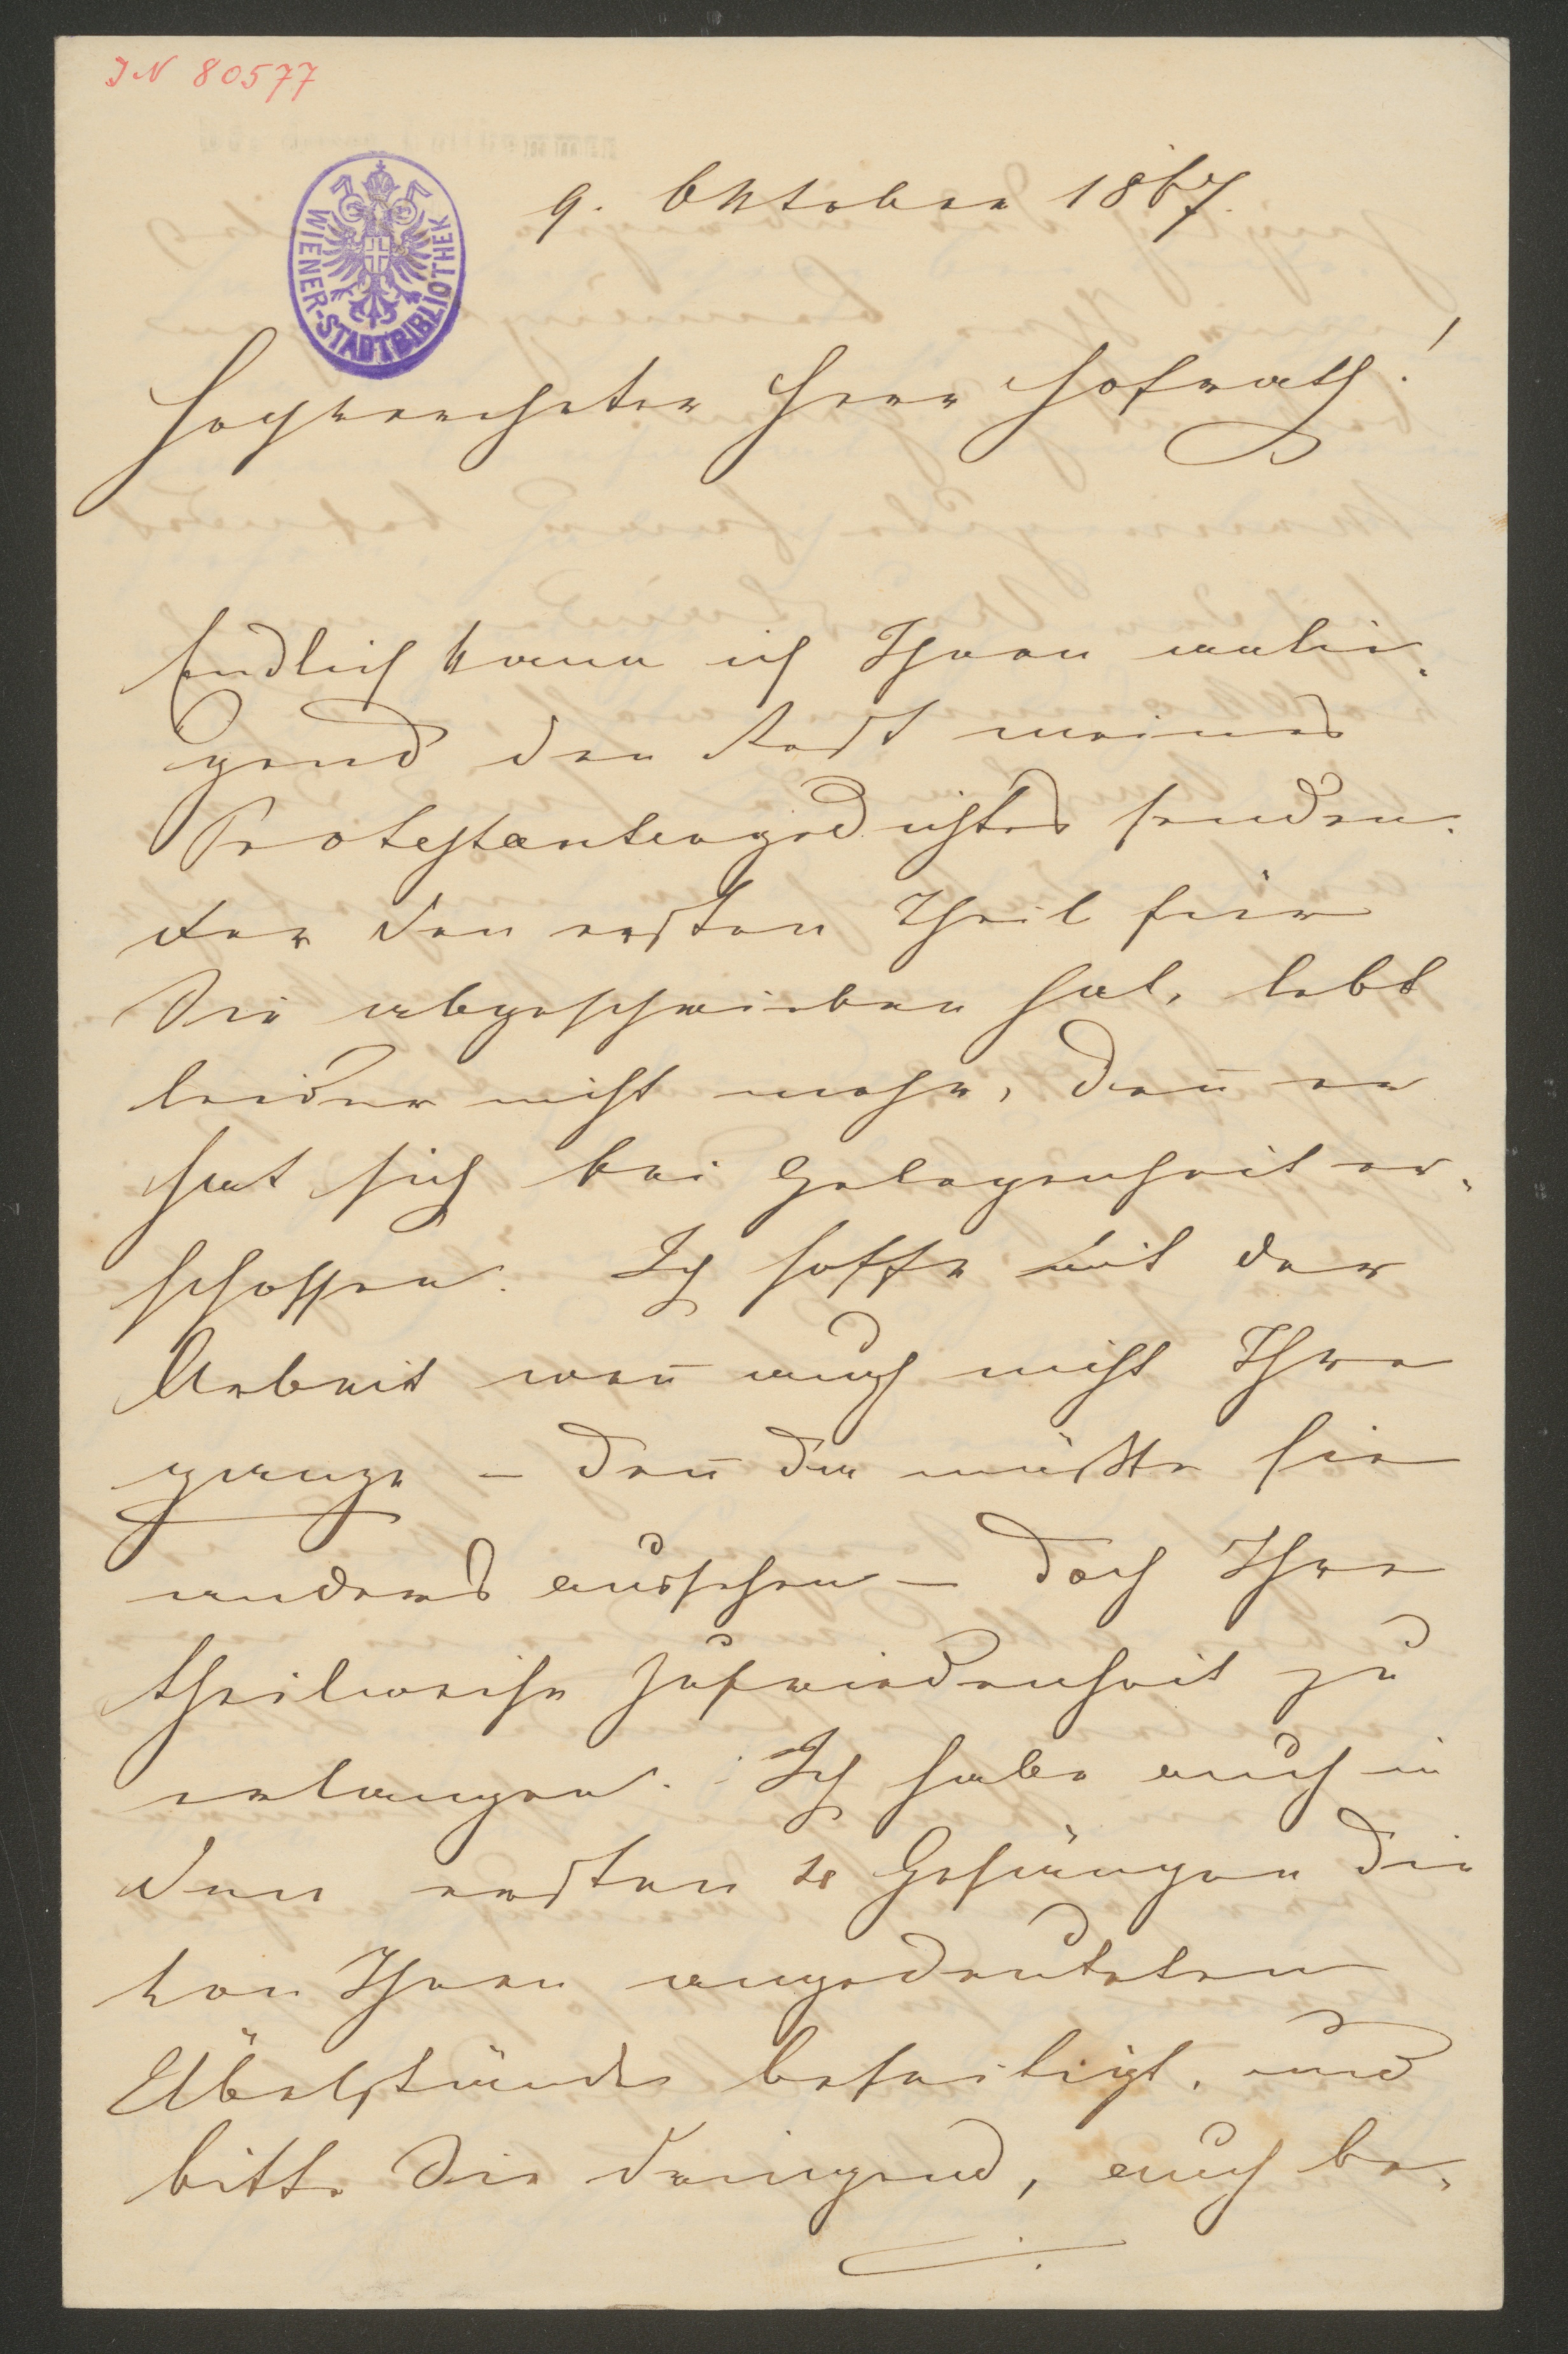 IN 80577
WIENER-STADTBIBLIOTHEK
9. Oktober 1867.
Hochverehrter Herr Hofrath!
Endlich kann ich Ihnen anlie-
gend den Rest meines
Protestantengedichtes senden.
Der den ersten Theil für
Sie abgeschrieben hat, lebt
leider nicht mehr, den̄ er
hat sich bei Gelegenheit er-
schossen. Ich hoffe mit der
Arbeit wen̄ auch nicht Ihre
ganze – den̄ da müßte sie
anders aussehen – doch Ihre
theilweise Zufriedenheit zu
erlangen. Ich habe auch in
den ersten Gesängen die
von Ihnen angedeuteten
Übelstände beseitigt, und
bitte Sie dringend, auch be-